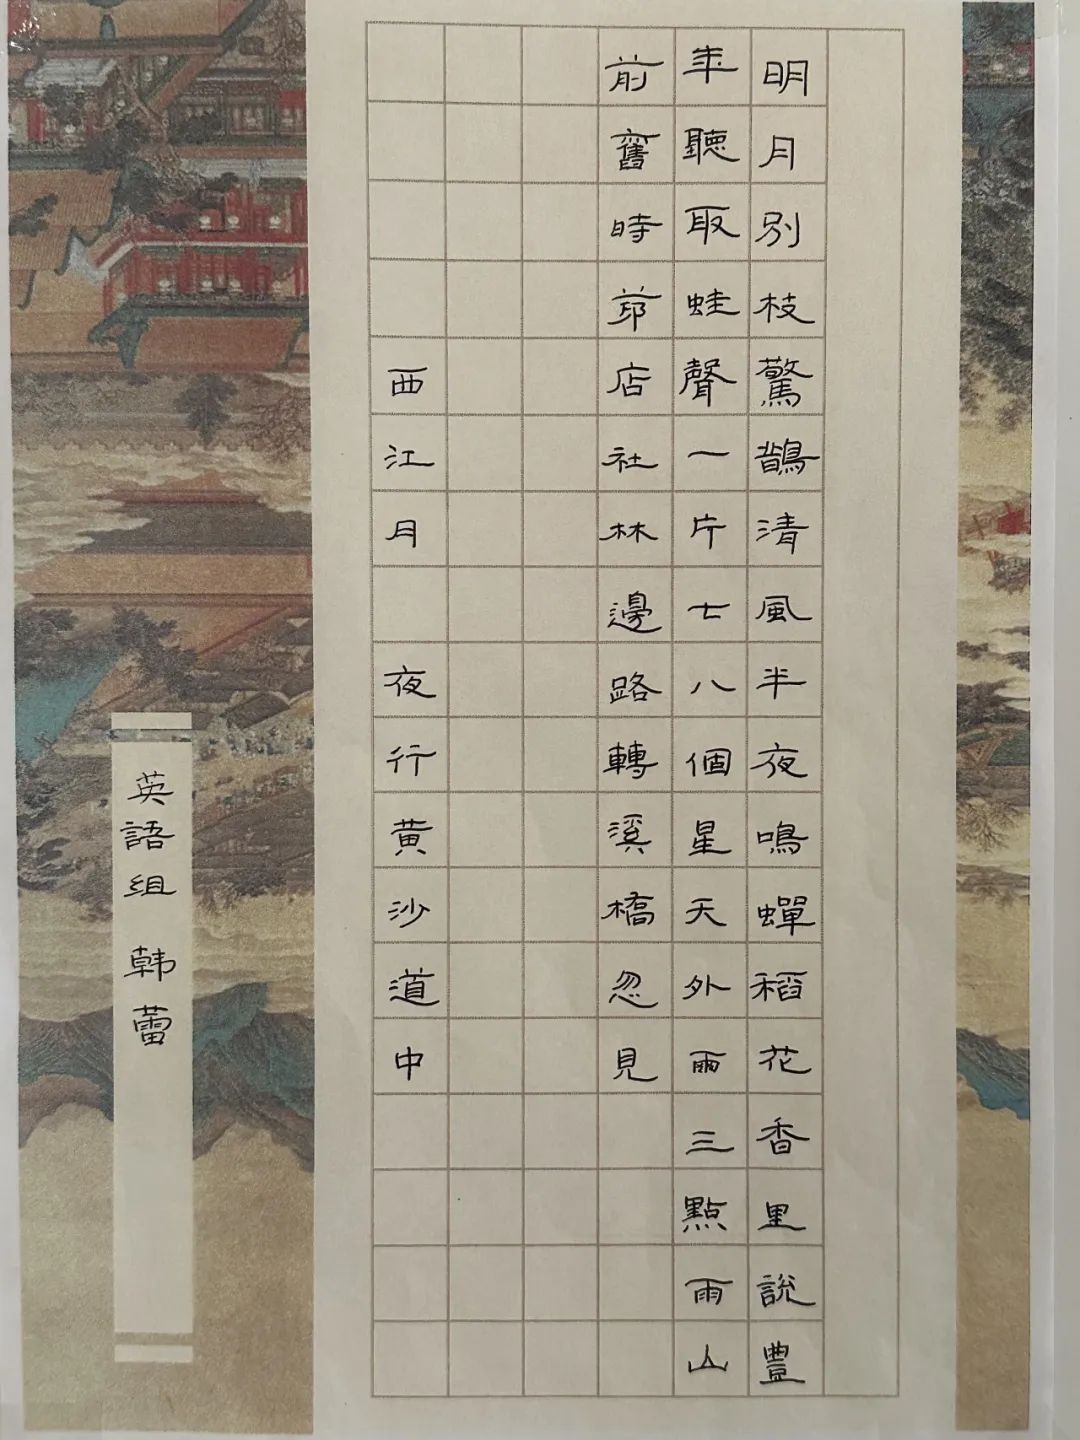 明月別枝驚鵲清風半夜鳴蟬稻花香里說豊
年聽取蛙聲一片七八個星天外兩三點雨山
前舊時茆店社林邊路轉溪橋忽見
西江月 夜行黃沙道中
英語組 韩蕾